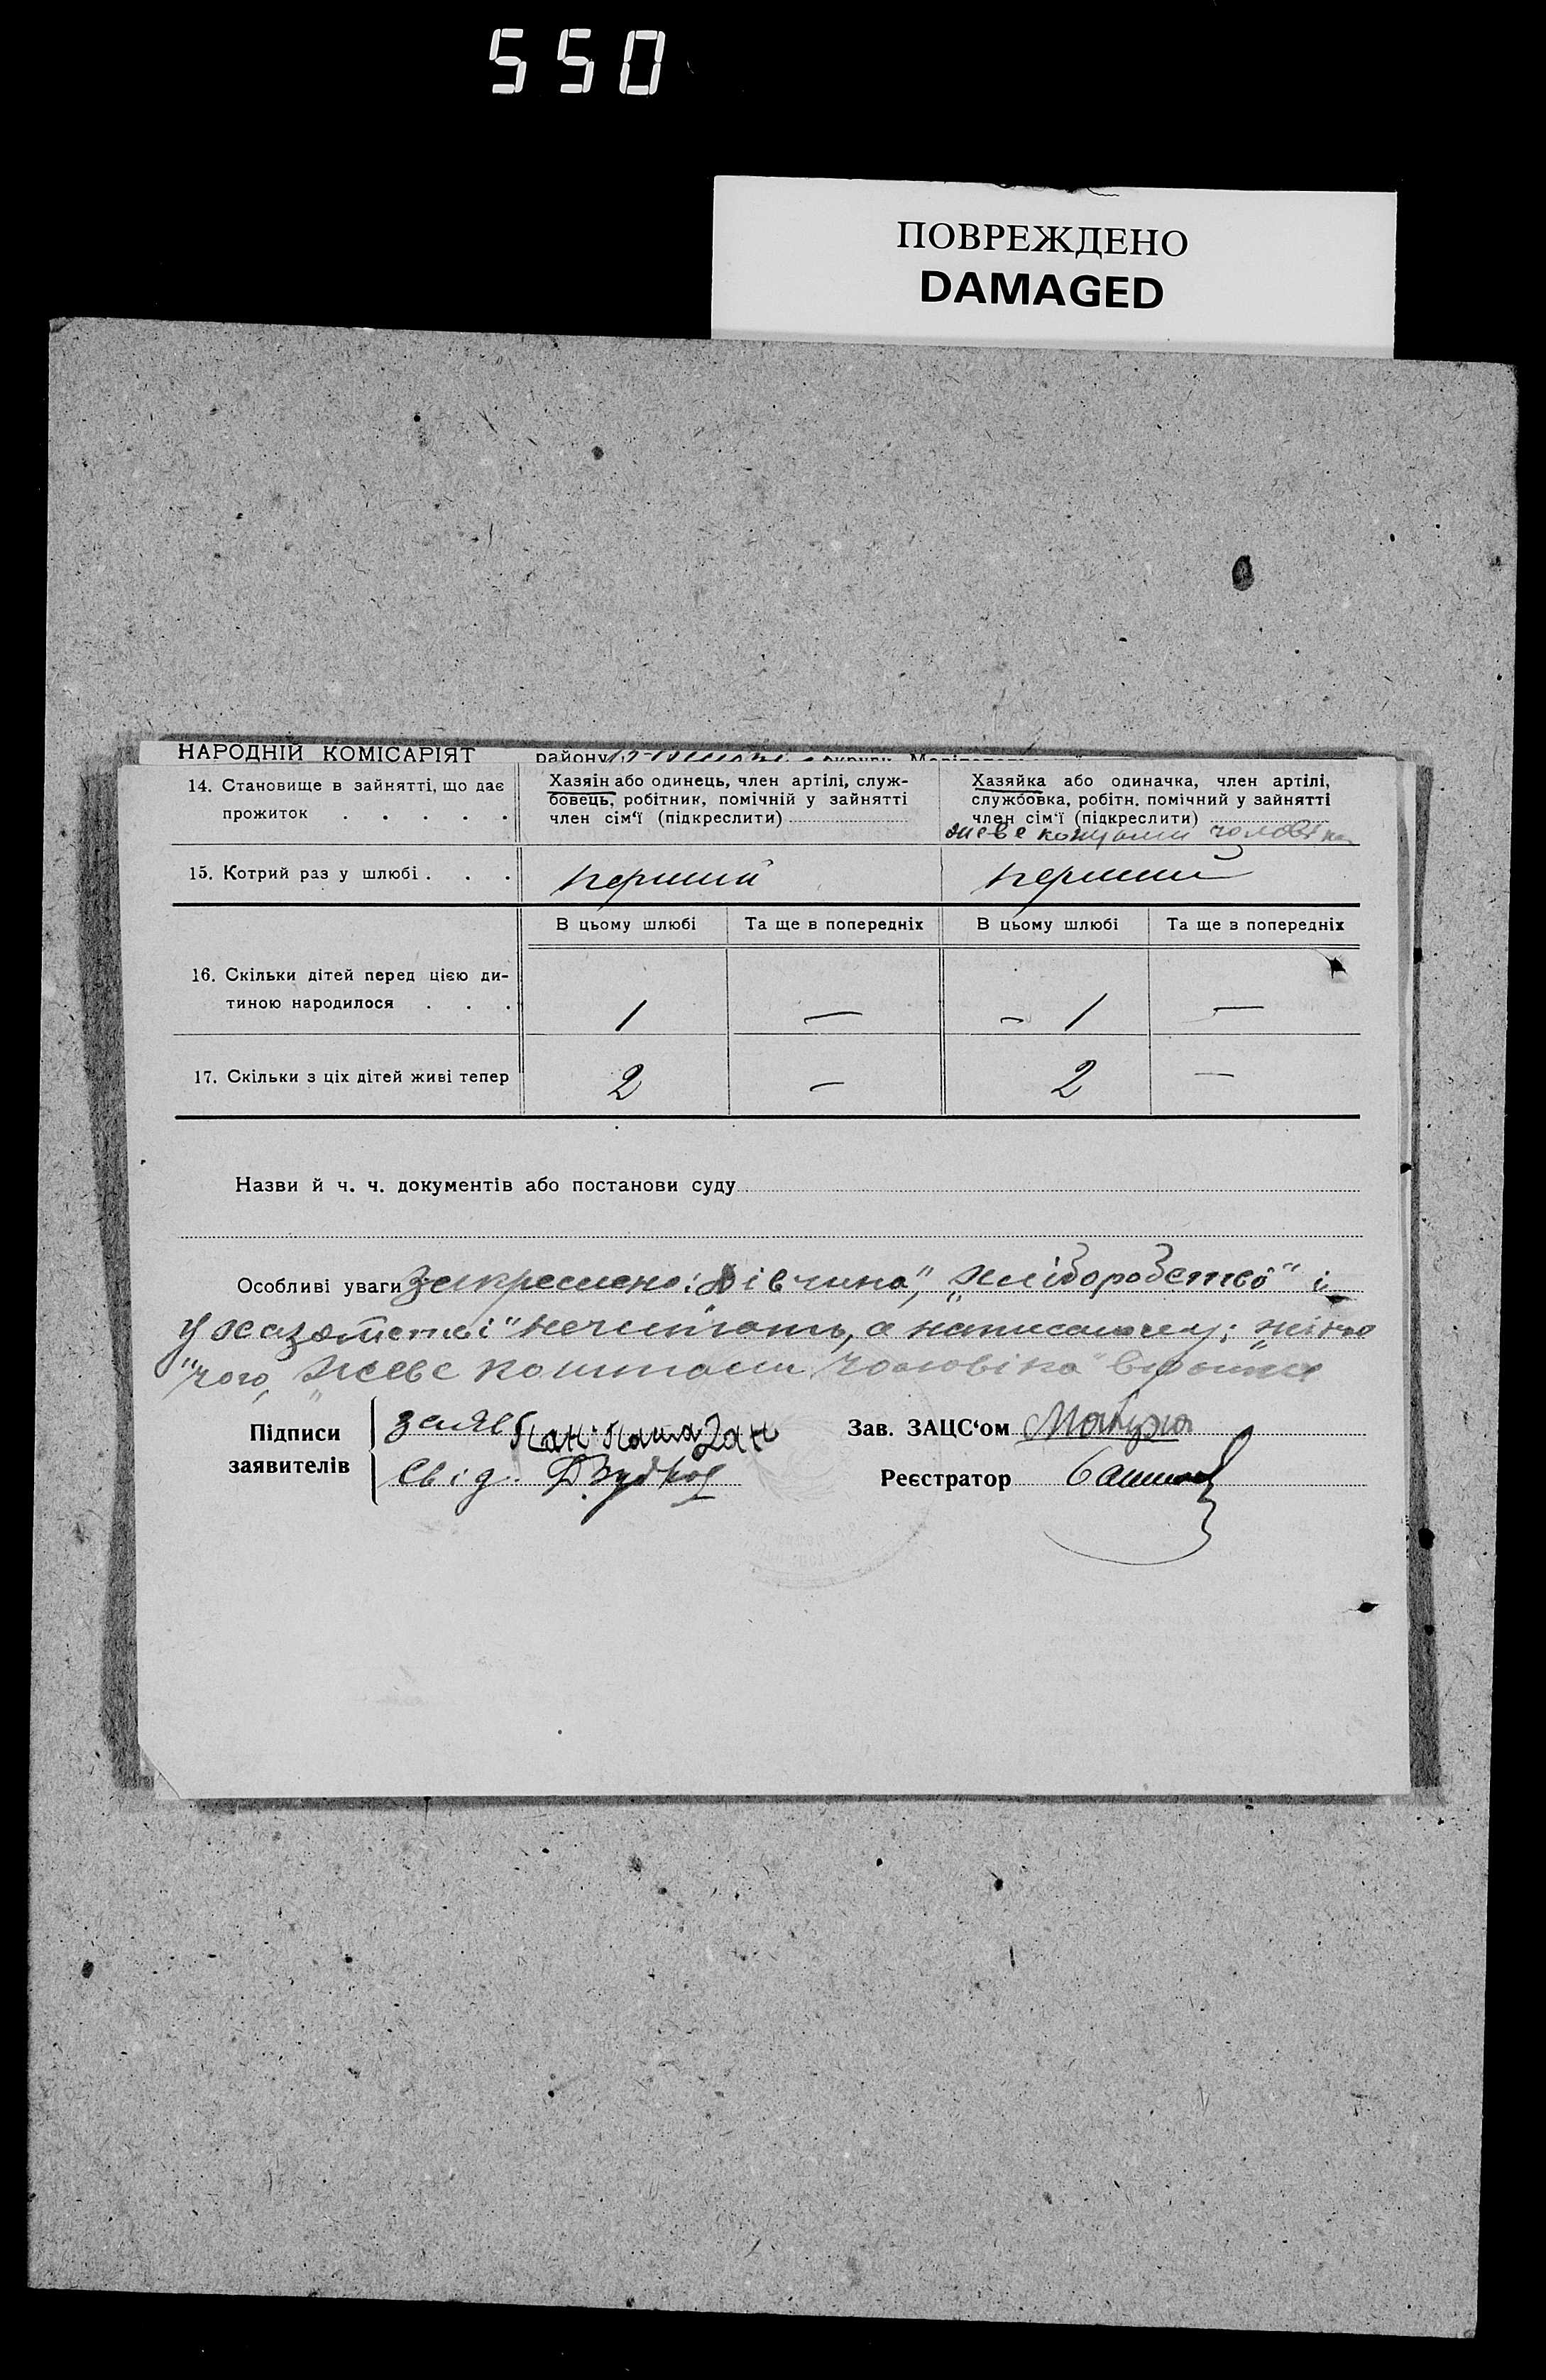 550
ПОВРЕЖДЕНО
DAMAGED
НАРОДНІЙ КОМІСАРІЯТ району
14. Становище в зайнятті, що дає
прожиток . . . . .
Хазяін або одинець, член артілі, служ-
бовець, робітник, помічній у зайнятті
член сім'ї (підкреслити)
Хазяйка або одиначка, член артілі,
службовка, робітн. помічний у зайнятті
член сім'ї (підкреслити)
живе коштами чоловіка
15. Котрий раз у шлюбі . . . перший перший
В цьому шлюбі Та ще в попередніх В цьому шлюбі Та ще в попередніх
16. Скільки дітей перед цією ди-
тиною народилося . . . 1 — - 1 —
17. Скільки з ціх дітей живі тепер 2 — 2 —
Назви й ч. ч. документів або постанови суду
Особливі уваги Закреслено: "Дівчина", "хліборобство" і
у хазяйстві" нечитать, а
"чого, "живе коштами чоловіка"
Підписи
заявителів
заяв
Свід.
Зав. ЗАЦС'ом
Реєстратор